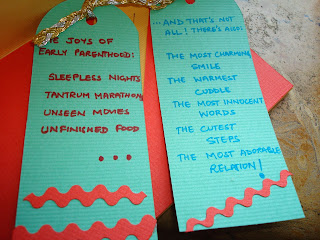 THE JOYS OF
EARLY PARENTHOOD:
SLEEPLESS NIGHTS
TANTRUM MARATHONS
UNSEEN MOVIES
UNFINISHED FOOD
...
...AND THAT'S NOT
ALL! THERE'S ALSO:
THE MOST CHARMING
SMILE
THE WARMEST
CUDDLE
THE MOST INNOCENT
WORDS
THE CUTEST
STEPS
THE MOST ADORABLE
RELATION!